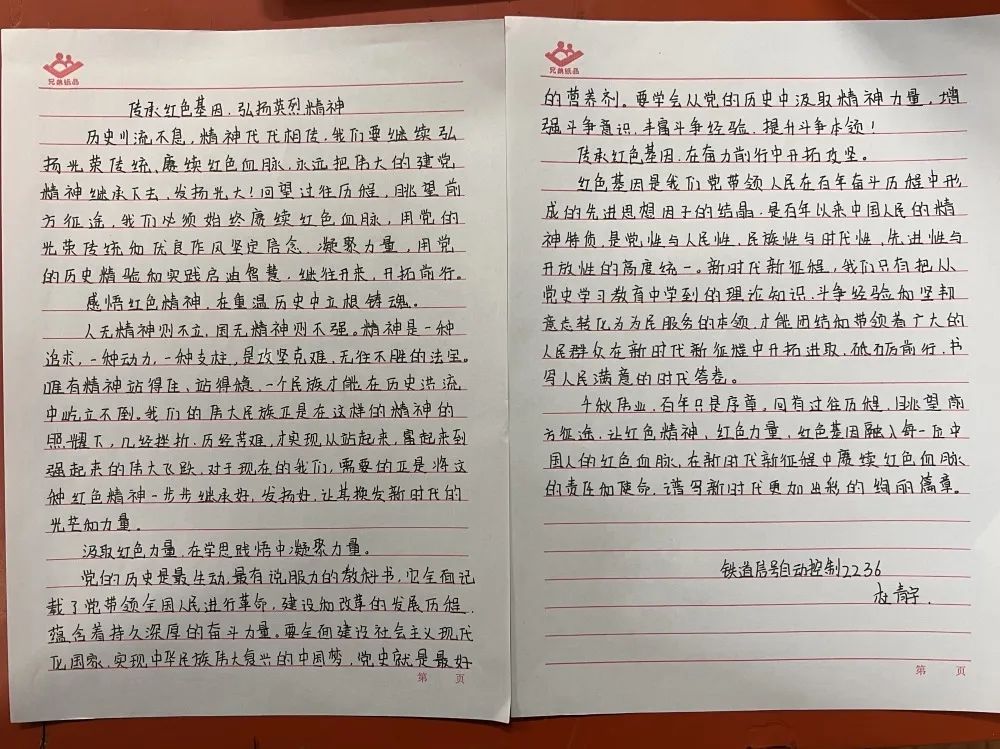 兄弟纸品
传承红色基因.弘扬英烈精神
历史川流不息,精神代代相传,我们要继续弘
扬光荣传统、赓续红色血脉,永远把伟大的建党
精神继承下去、发扬光大!回望过往历程,眺望前
方征途,我们必须始终赓续红色血脉,用党的
光荣传统和优良作风坚定信念、凝聚力量,用党
的历史精验和实践启迪智慧,继往开来,开拓前行。
感悟红色精神,在重温历史中立根铸魂。
人无精神则不立,国无精神则不强。精神是一种
追求,一种动力,一种支柱,是攻坚克难,无往不胜的法宝。
唯有精神站得住、站得稳,一个民族才能在历史洪流
中屹立不倒。我们的伟大民族正是在这样的精神的
照耀下,几经挫折,历经苦难,才实现从站起来,富起来到
强起来的伟大飞跃,对于现在的我们,需要的正是将这
种红色精神一步步继承好,发扬好,让其换发新时代的
光芒和力量。
汲取红色力量,在学思践悟中凝聚力量。
党的历史是最生动,最有说服力的教科书,它全面记
载了党带领全国人民进行革命,建设和改革的发展历程,
蕴含着持久深厚的奋斗力量。要全面建设社会主义现代
化国家,实现中华民族伟大复兴的中国梦,党史就是最好
第 页
兄弟纸品
的营养剂。要学会从党的历史中汲取精神力量,增
强斗争意识,丰富斗争经验,提升斗争本领!
传承红色基因,在奋力前行中开拓攻坚。
红色基因是我们党带领人民在百年奋斗历程中形
成的先进思想因子的结晶,是百年以来中国人民的精
神特质,是党性与人民性,民族性与时代性,先进性与
开放性的高度统一。新时代新征程,我们只有把从
党史学习教育中学到的理论知识,斗争经验和坚韧
意志转化为为民服务的本领,才能团结和带领着广大的
人民群众在新时代新征程中开拓进取,砥砺前行,书
写人民满意的时代答卷。
千秋伟业,百年只是序章。回首过往历程,眺望前
方征途,让红色精神、红色力量,红色基因融入每一位中
国人的红色血脉,在新时代新征程中赓续红色血脉
的责任和使命,谱写新时代更加出彩的绚丽篇章。
铁道信号自动控制2236
青宇.
第 页